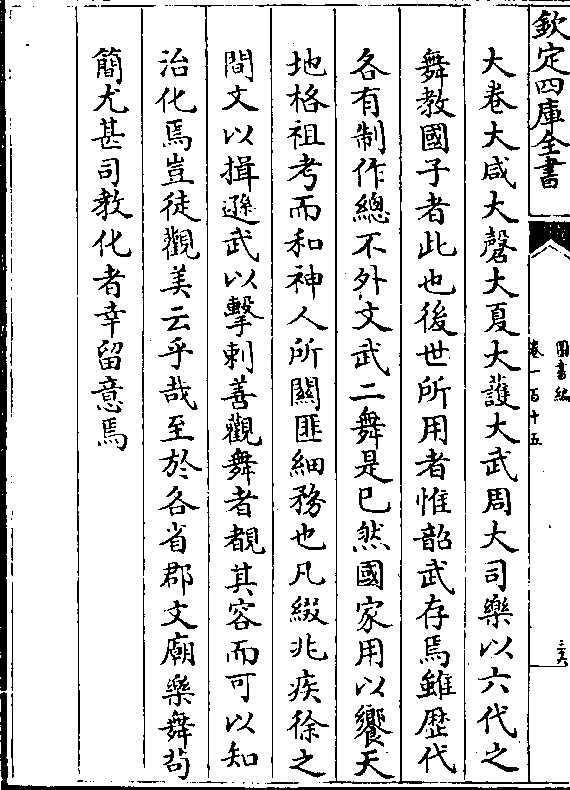 欽定四庫全書
圖書編
卷一百十五
三六
大卷大咸大磬大夏大濩大武周大司樂以六代之
舞教國子者此也後世所用者惟韶武存焉雖歴代
各有制作總不外文武二舞是已然國家用以饗天
地格祖考而和神人所關匪細務也凡綴兆疾徐之
間文以揖遜武以擊刺善觀舞者覩其容而可以知
治化焉豈徒觀美云乎哉至於各省郡文廟樂舞茍
簡尤甚司教化者幸留意焉